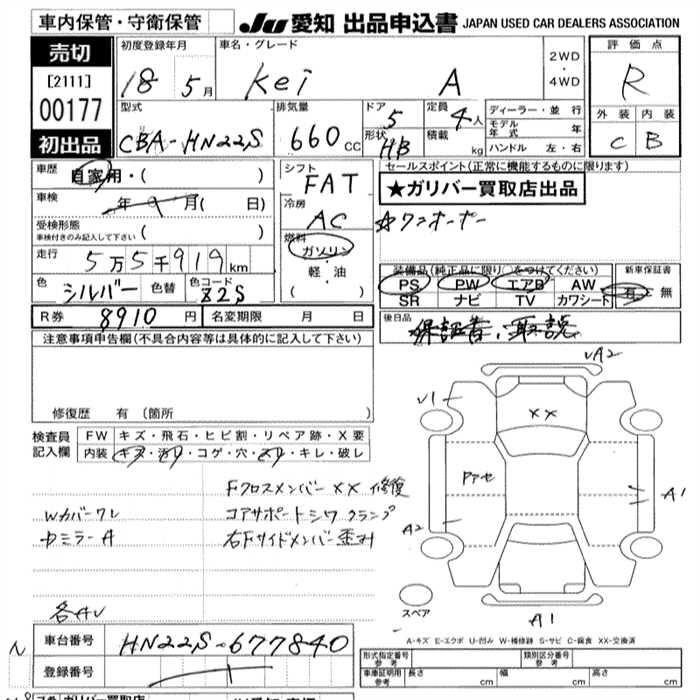 車内保管・守衛保管
JU 愛知 出品申込書 JAPAN USED CAR DEALERS ASSOCIATION
売切
[2111]
00177
初出品
初度登録年月
18 5月
車名・グレード
Kei A
2WD
・
4WD
評価点
R
外装 内装
C B
型式
CBA-HN22S
排気量
660cc
ドア 5
形状 HB
定員 4人
積載 kg
ディーラー・並行
モデル年式 年
ハンドル 左・右
車歴 自家用・( )
車検 年 9 月( 日)
受検形態
車検付きのみ記入して下さい ( )
走行 5万5千919km
色 シルバー 色替 色コード Z2S
シフト FAT
冷房 AC
燃料
ガソリン
・
軽・油
( )
セールスポイント(正常に機能するものに限ります)
★ガリバー買取店出品
☆ワンオーナー
装備品(純正品に限り○をつけてください)
PS PW エアB AW
SR ナビ TV カワシート
新車保証書
有・無
R券 8910円 名変期限 月 日
後日品
保証書、取説
注意事項申告欄(不具合内容等は具体的に記入して下さい)
修復歴 有 (箇所
検査員
記入欄
FW キズ・飛石・ヒビ割・リペア跡・X要
内装 キズ・汚れ・コゲ・穴・スリ・キレ・破レ
Fクロスメンバー××修復
Wカバーワレ コアサポートシワクランプ
中ミラーA 右Fサイドメンバー歪み
各AU
VA2
V1
××
Pアセ
A1
A2
A1
スペア
A-キズ E-エクボ U-凹み W-補修跡 S-サビ C-腐食 XX-交換済
車台番号 HN22S-677840
登録番号
形式指定番号
参考
類別区分番号
参考
車庫証明用
参考
長さ cm 幅 cm 高さ cm